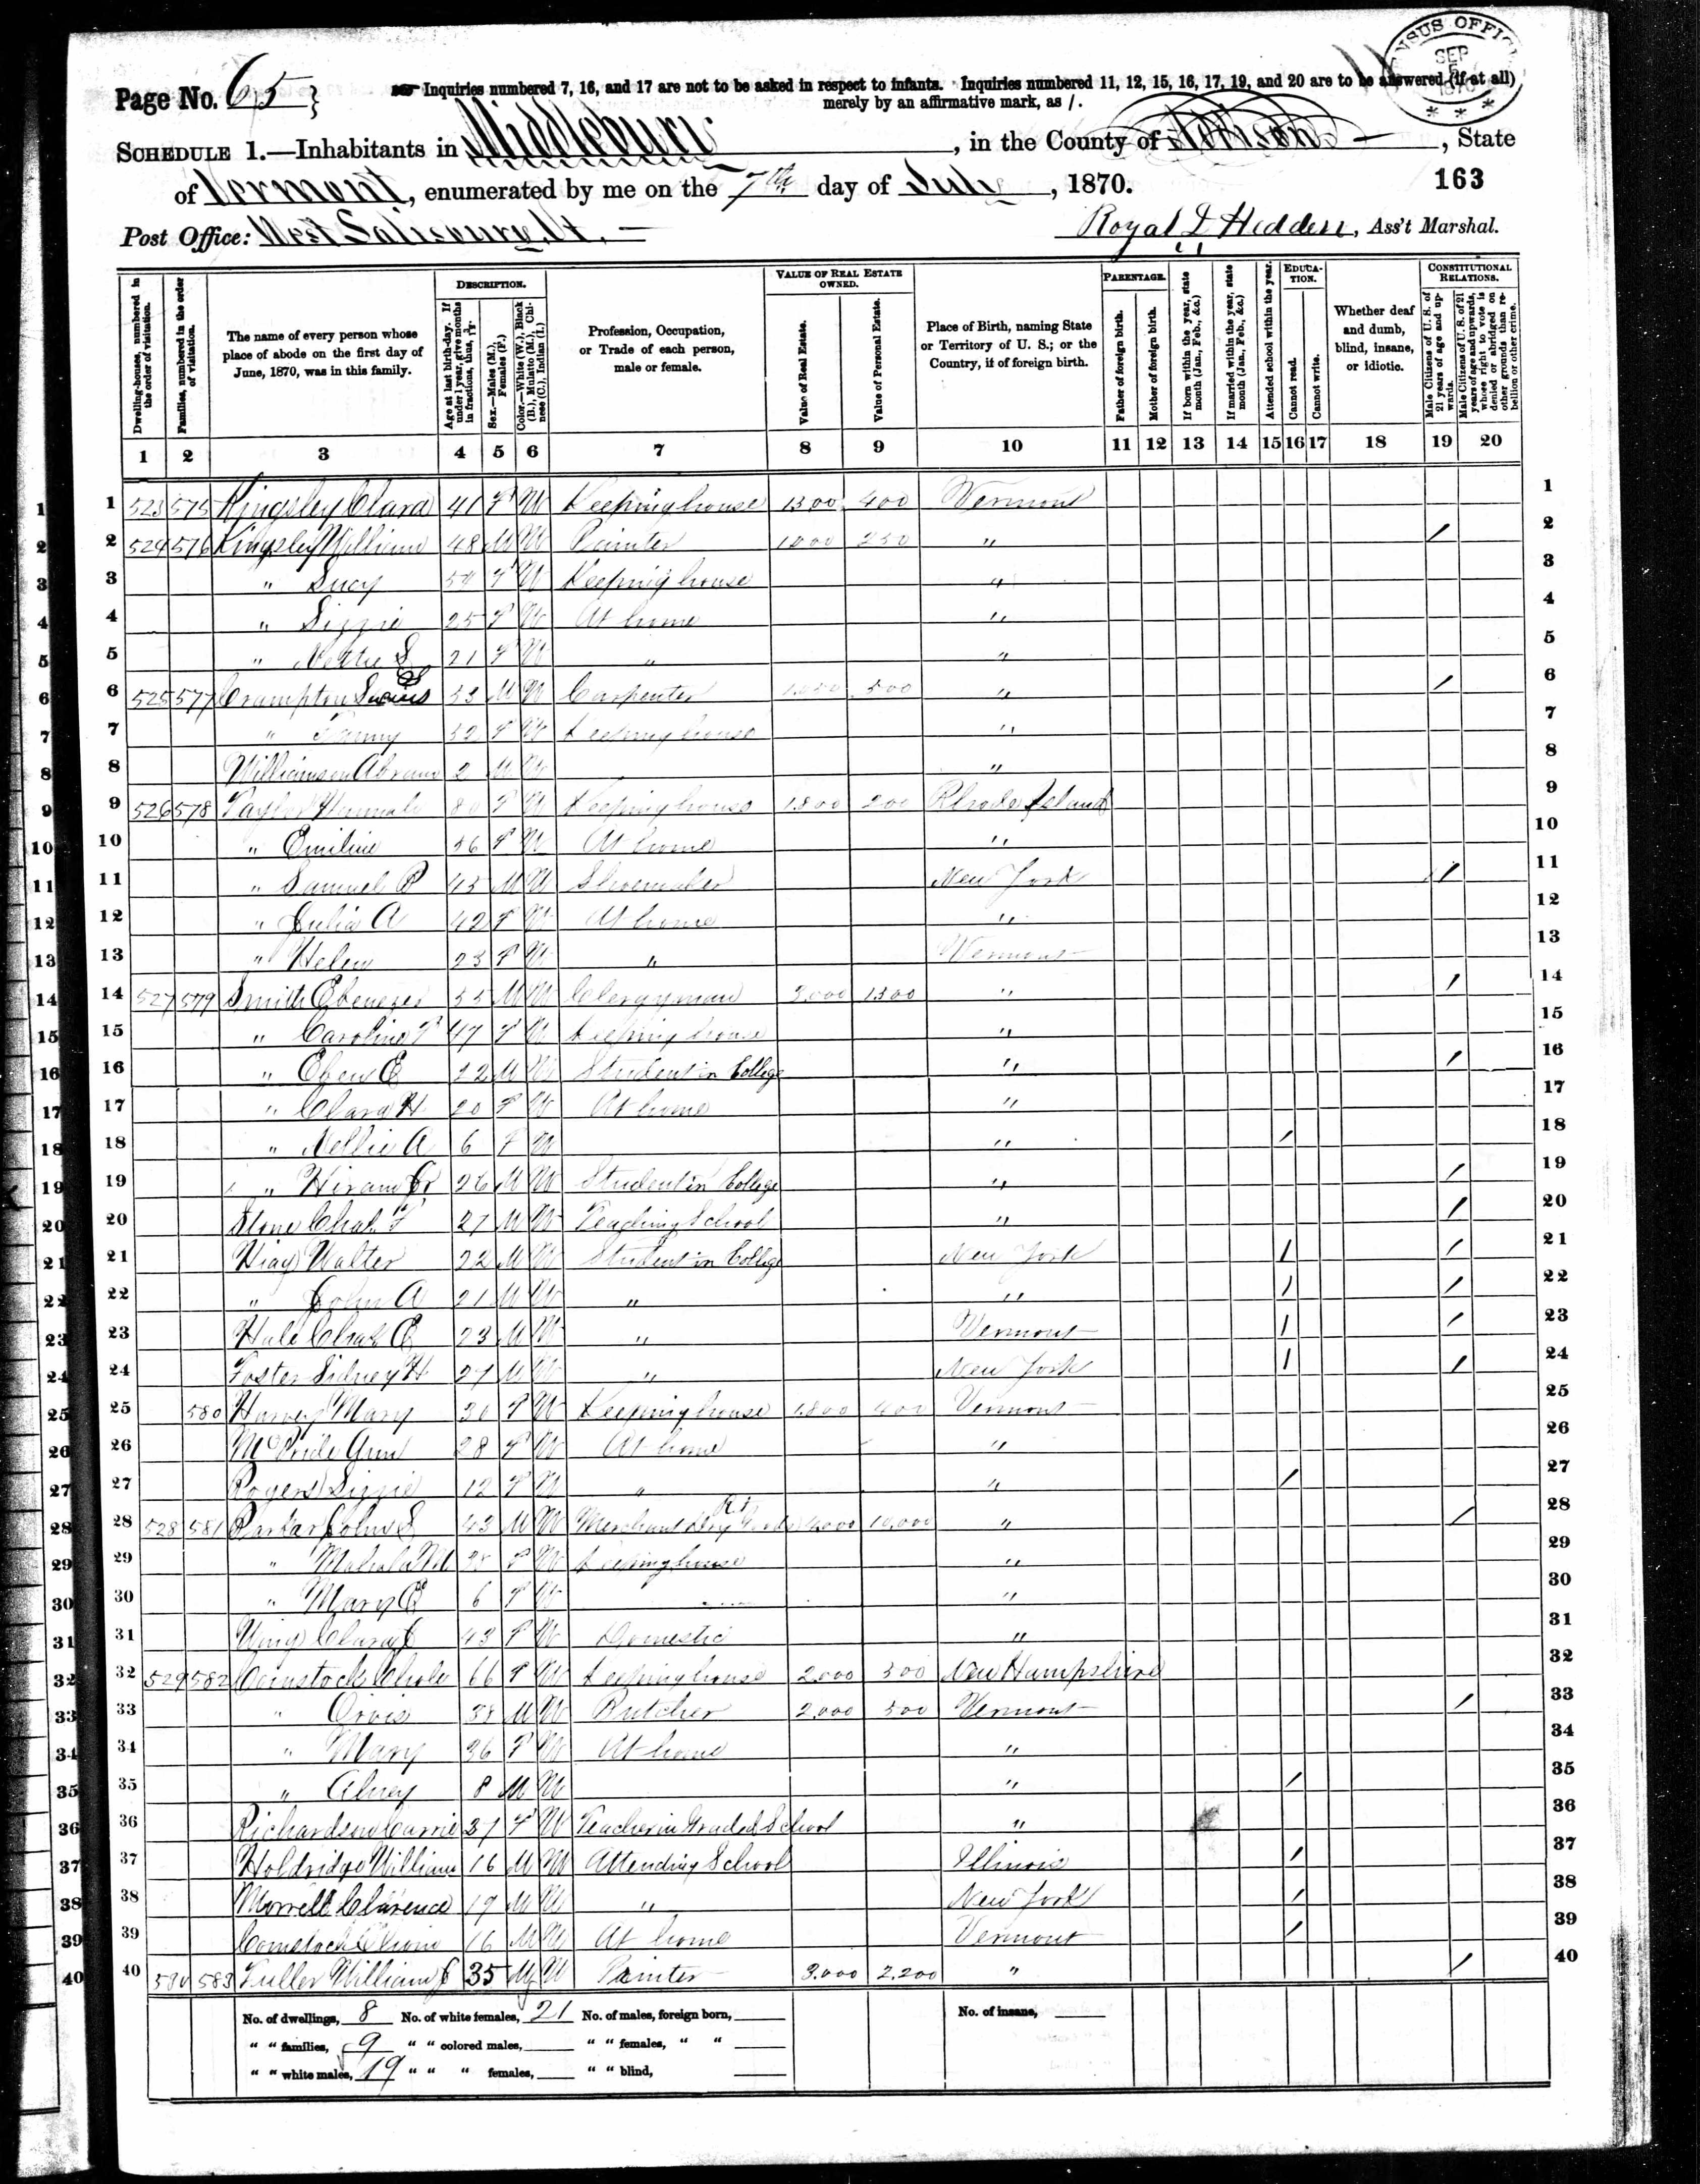 Page No. 65
Inquiries numbered 7, 16, and 17 are not to be asked in respect to infants. Inquiries numbered 11, 12, 15, 16, 17, 19, and 20 are to be answered (if at all)
merely by an affirmative mark, as /.
CENSUS OFFICE SEP 1870
SCHEDULE 1.—Inhabitants in Middlebury, in the County of Addison, State
of Vermont, enumerated by me on the 7th day of July, 1870. 163
Post Office: West Salisbury, Vt. Royal D Hedden, Ass't Marshal.
Dwelling-houses, numbered in the order of visitation.
Families, numbered in the order of visitation.
The name of every person whose place of abode on the first day of June, 1870, was in this family.
DESCRIPTION.
Age at last birth-day. If under 1 year, give months in fractions, thus, 3/12.
Sex.—Males (M.), Females (F.)
Color.—White (W.), Black (B.), Mulatto (M.), Chinese (C.), Indian (I.)
Profession, Occupation, or Trade of each person, male or female.
VALUE OF REAL ESTATE OWNED.
Value of Real Estate.
Value of Personal Estate.
Place of Birth, naming State or Territory of U. S.; or the Country, if of foreign birth.
PARENTAGE.
Father of foreign birth.
Mother of foreign birth.
If born within the year, state month (Jan., Feb., &c.)
If married within the year, state month (Jan., Feb., &c.)
Attended school within the year.
EDUCATION.
Cannot read.
Cannot write.
Whether deaf and dumb, blind, insane, or idiotic.
CONSTITUTIONAL RELATIONS.
Male Citizens of U. S. of 21 years of age and upwards.
Male Citizens of U. S. of 21 years of age and upwards, whose right to vote is denied or abridged on other grounds than rebellion or other crime.
1 2 3 4 5 6 7 8 9 10 11 12 13 14 15 16 17 18 19 20
1 523 575 Kingsley Clara 41 F W Keeping house 1300 400 Vermont 1
2 524 576 Kingsley William 48 M W Painter 1000 250 " / 2
3 " Lucy F W Keeping house " 3
4 " Lizzie 25 F W At home " 4
5 " Nettie S 21 F W " " 5
6 525 577 Crampton Lucius 53 M W Carpenter 500 " / 6
7 " Fanny 52 F W Keeping house " 7
8 Williamson Abram 2 M W " 8
9 526 578 Taylor Hannah 80 F W Keeping house 1800 200 Rhode Island 9
10 " Emiline 56 F W At home " 10
11 " Samuel P 45 M W Shoemaker New York / 11
12 " Julia A 42 F W At home " 12
13 " Helen 23 F W " Vermont 13
14 527 579 Smith Ebenezer 55 M W Clergyman 3000 1300 " / 14
15 " Caroline F 47 F W Keeping house " 15
16 " Eben E 22 M W Student in College " / 16
17 " Clara H 20 F W At home " 17
18 " Nellie A 6 F W " / 18
19 " Hiram 26 M W Student in College " / 19
20 Stone Chas. F 27 M W Teaching School " / 20
21 Walter 22 M W Student in College New York / / 21
22 " John A 21 M W " " / / 22
23 Hale Chas E 23 M W " Vermont / / 23
24 Foster Sidney H 27 M W " New York / / 24
25 580 Harvey Mary 30 F W Keeping house 1800 400 Vermont 25
26 McBride Ann 28 F W At home " 26
27 Rogers Lizzie 12 F W " " / 27
28 528 581 John S 43 M W Merchant Dry Goods 4000 10,000 " / 28
29 " M F W Keeping house " 29
30 " Mary E 6 F W " 30
31 43 F W Domestic " 31
32 529 582 Comstock Chole 66 F W Keeping house 2,000 300 New Hampshire 32
33 " Orvis 38 M W Butcher 2,000 500 Vermont / 33
34 " Mary 36 F W At home " 34
35 " 8 M W " / 35
36 Richardson Carrie F W Teacher in Graded School " 36
37 Holdridge William 16 M W Attending School Illinois / 37
38 Morrell Clarence 17 M W " New York / 38
39 Comstock 16 M W At home Vermont / 39
40 530 583 Fuller William J 35 M W Painter 3.000 2.200 " / 40
No. of dwellings, 8 No. of white females, 21 No. of males, foreign born, No. of insane,
" " families, 9 " " colored males, " " females, " "
" " white males, 19 " " " females, " " blind,